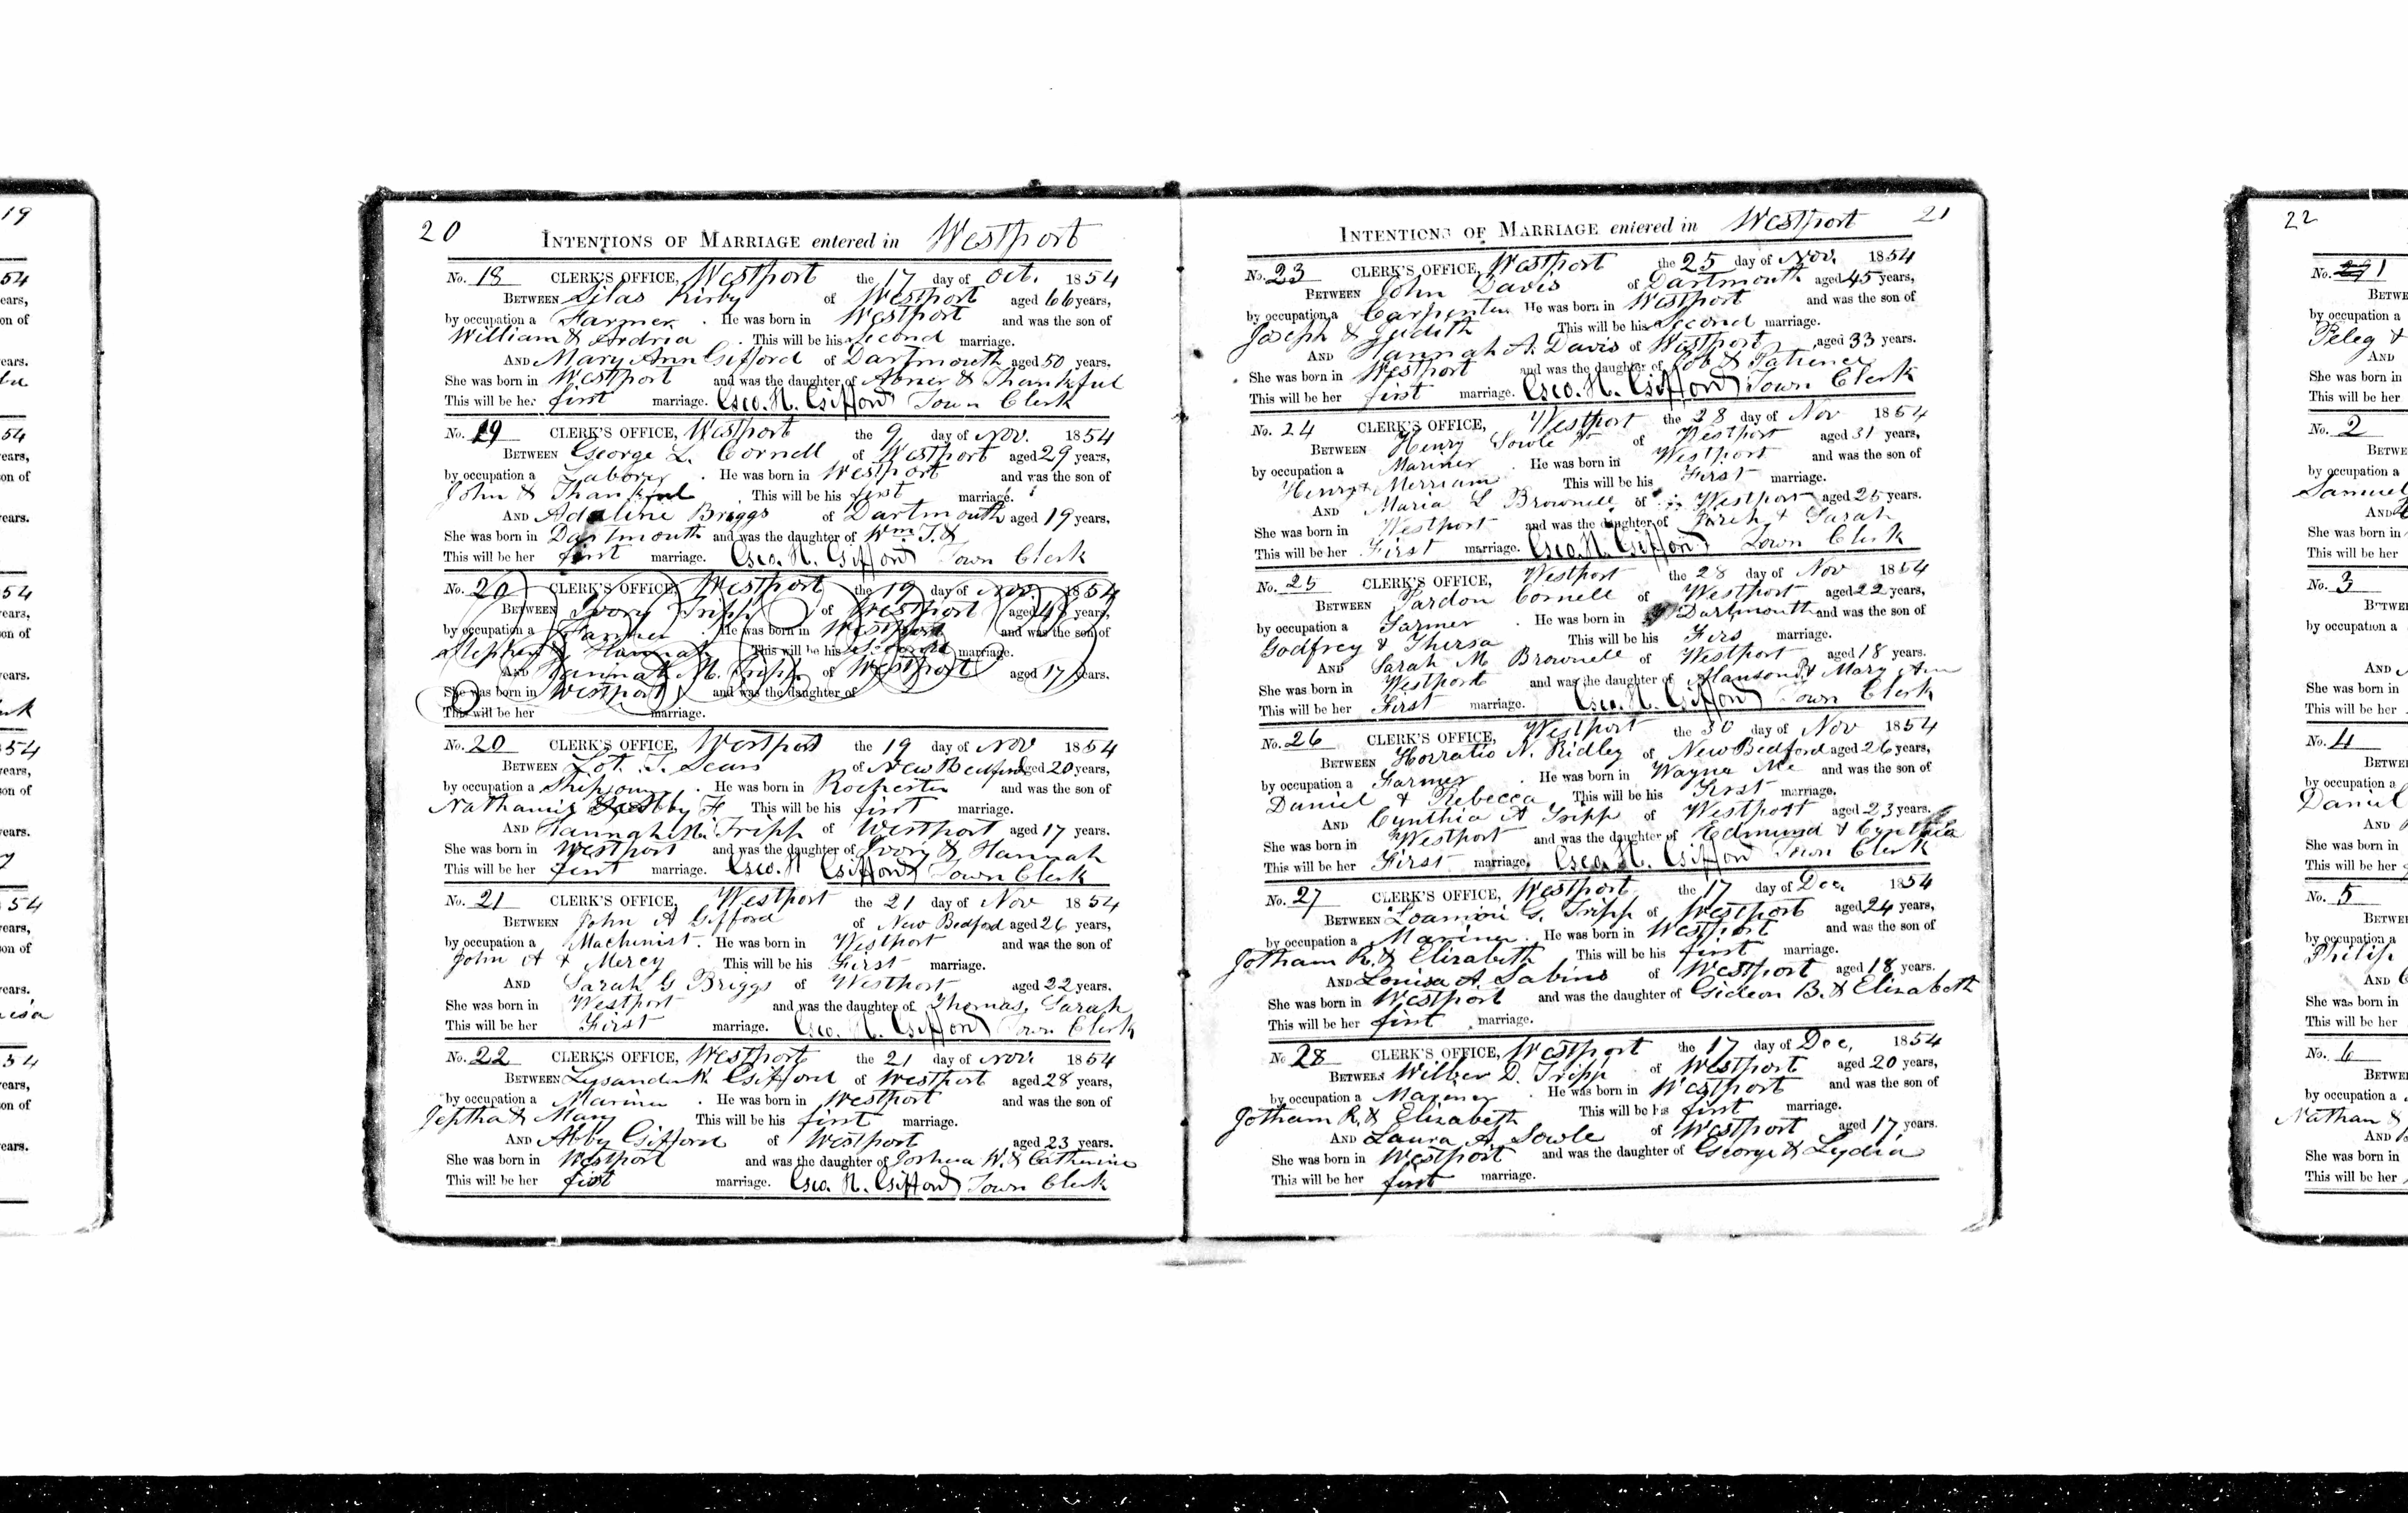 19
54
ears,
on of
ears.
54
ears,
on of
ears.
54
ears,
on of
ears.
54
ears,
on of
ears.
54
ears,
on of
ears.
54
ears,
on of
ears.
20 INTENTIONS OF MARRIAGE entered in Westport
No. 18 CLERK'S OFFICE, Westport the 17 day of Oct. 1854
BETWEEN Silas Kirby of Westport aged 66 years,
by occupation a Farmer . He was born in Westport and was the son of
William & Ardria . This will be his second marriage.
AND Mary Ann Gifford of Dartmouth aged 50 years.
She was born in Westport and was the daughter of Abner & Thankful
This will be her first marriage. Geo. H. Gifford Town Clerk
No. 19 CLERK'S OFFICE, Westport the 9 day of Nov. 1854
BETWEEN George L. Cornell of Westport aged 29 years,
by occupation a Laborer . He was born in Westport and was the son of
John & Thankful . This will be his first marriage.
AND Adaline Briggs of Dartmouth aged 19 years.
She was born in Dartmouth and was the daughter of Wm. T. &
This will be her first marriage. Geo. H. Gifford Town Clerk
No. 20 CLERK'S OFFICE, Westport the 19 day of Nov. 1854
BETWEEN Ivory Tripp of Westport aged 48 years,
by occupation a Farmer . He was born in Westport and was the son of
Stephen & Hannah This will be his second marriage.
AND Hannah M. Tripp of Westport aged 17 years.
She was born in Westport and was the daughter of
This will be her marriage.
No. 20 CLERK'S OFFICE, Westport the 19 day of Nov 1854
BETWEEN Lot. T. Sears of New Bedford aged 20 years,
by occupation a . He was born in Rochester and was the son of
This will be his first marriage.
AND Hannah M. Tripp of Westport aged 17 years.
She was born in Westport and was the daughter of Ivory & Hannah
This will be her first marriage. Geo. H Gifford Town Clerk
No. 21 CLERK'S OFFICE, Westport the 21 day of Nov 1854
BETWEEN John A Gifford of New Bedford aged 26 years,
by occupation a Machinist. He was born in Westport and was the son of
John A & Mercy This will be his First marriage.
AND Sarah G Briggs of Westport aged 22 years.
She was born in Westport and was the daughter of Thomas, Sarah
This will be her First marriage. Geo. H. Gifford Town Clerk
No. 22 CLERK'S OFFICE, Westport the 21 day of Nov. 1854
BETWEEN Lysander W. Gifford of Westport aged 28 years,
by occupation a Mariner . He was born in Westport and was the son of
Jeptha & Mary This will be his first marriage.
AND Abby Gifford of Westport aged 23 years.
She was born in Westport and was the daughter of Joshua W. & Catherine
This will be her first marriage. Geo. H. Gifford Town Clerk
INTENTIONS OF MARRIAGE entered in Westport 21
No. 23 CLERK'S OFFICE, Westport the 25 day of Nov. 1854
BETWEEN John Davis of Dartmouth aged 45 years,
by occupation a Carpenter He was born in Westport and was the son of
Joseph & Judith This will be his second marriage.
AND Hannah A. Davis of Westport aged 33 years.
She was born in Westport and was the daughter of Job & Patience
This will be her first marriage. Geo. H. Gifford Town Clerk
No. 24 CLERK'S OFFICE, Westport the 28 day of Nov 1854
BETWEEN Henry Sowle Jr of Westport aged 31 years,
by occupation a Mariner . He was born in Westport and was the son of
Henry & Merriam This will be his First marriage.
AND Maria L Brownell of Westport aged 25 years.
She was born in Westport and was the daughter of Jireh & Sarah
This will be her First marriage. Geo. H. Gifford Town Clerk
No. 25 CLERK'S OFFICE, Westport the 28 day of Nov 1854
BETWEEN Pardon Cornell of Westport aged 22 years,
by occupation a Farmer . He was born in Dartmouth and was the son of
Godfrey & Thersa This will be his Firs marriage.
AND Sarah M Brownell of Westport aged 18 years.
She was born in Westport and was the daughter of Alanson & Mary Ann
This will be her First marriage. Geo. H. Gifford Town Clerk
No. 26 CLERK'S OFFICE, Westport the 30 day of Nov 1854
BETWEEN Horratio N. Ridley of New Bedford aged 26 years,
by occupation a Farmer . He was born in Wayne Me and was the son of
Daniel & Rebecca This will be his First marriage.
AND Cynthia A Tripp of Westport aged 23 years.
She was born in Westport and was the daughter of Edmund & Cynthia
This will be her First marriage. Geo. H. Gifford Town Clerk
No. 27 CLERK'S OFFICE, Westport the 17 day of Dec. 1854
BETWEEN Loammi G. Tripp of Westport aged 24 years,
by occupation a Mariner. He was born in Westport and was the son of
Jotham R. & Elizabeth This will be his first marriage.
AND Louisa A. Sabins of Westport aged 18 years.
She was born in Westport and was the daughter of Gideon B. & Elizabeth
This will be her first marriage.
No 28 CLERK'S OFFICE, Westport the 17 day of Dec, 1854
BETWEEN Wilber D. Tripp of Westport aged 20 years,
by occupation a Mariner . He was born in Westport and was the son of
Jotham R. & Elizabeth This will be his first marriage.
AND Laura A. Sowle of Westport aged 17 years.
She was born in Westport and was the daughter of George & Lydia
This will be her first marriage.
22
No. 1
BETWE
by occupation a
Peleg &
AND
She was born in
This will be her
No. 2
BETWE
by occupation a
Samuel
AND
She was born in
This will be her
No. 3
BETWE
by occupation a
AND
She was born in
This will be her
No. 4
BETWE
by occupation a
Daniel
AND
She was born in
This will be her
No. 5
BETWE
by occupation a
Philip
AND
She was born in
This will be her
No. 6
BETWE
by occupation a
Nathan &
AND
She was born in
This will be her